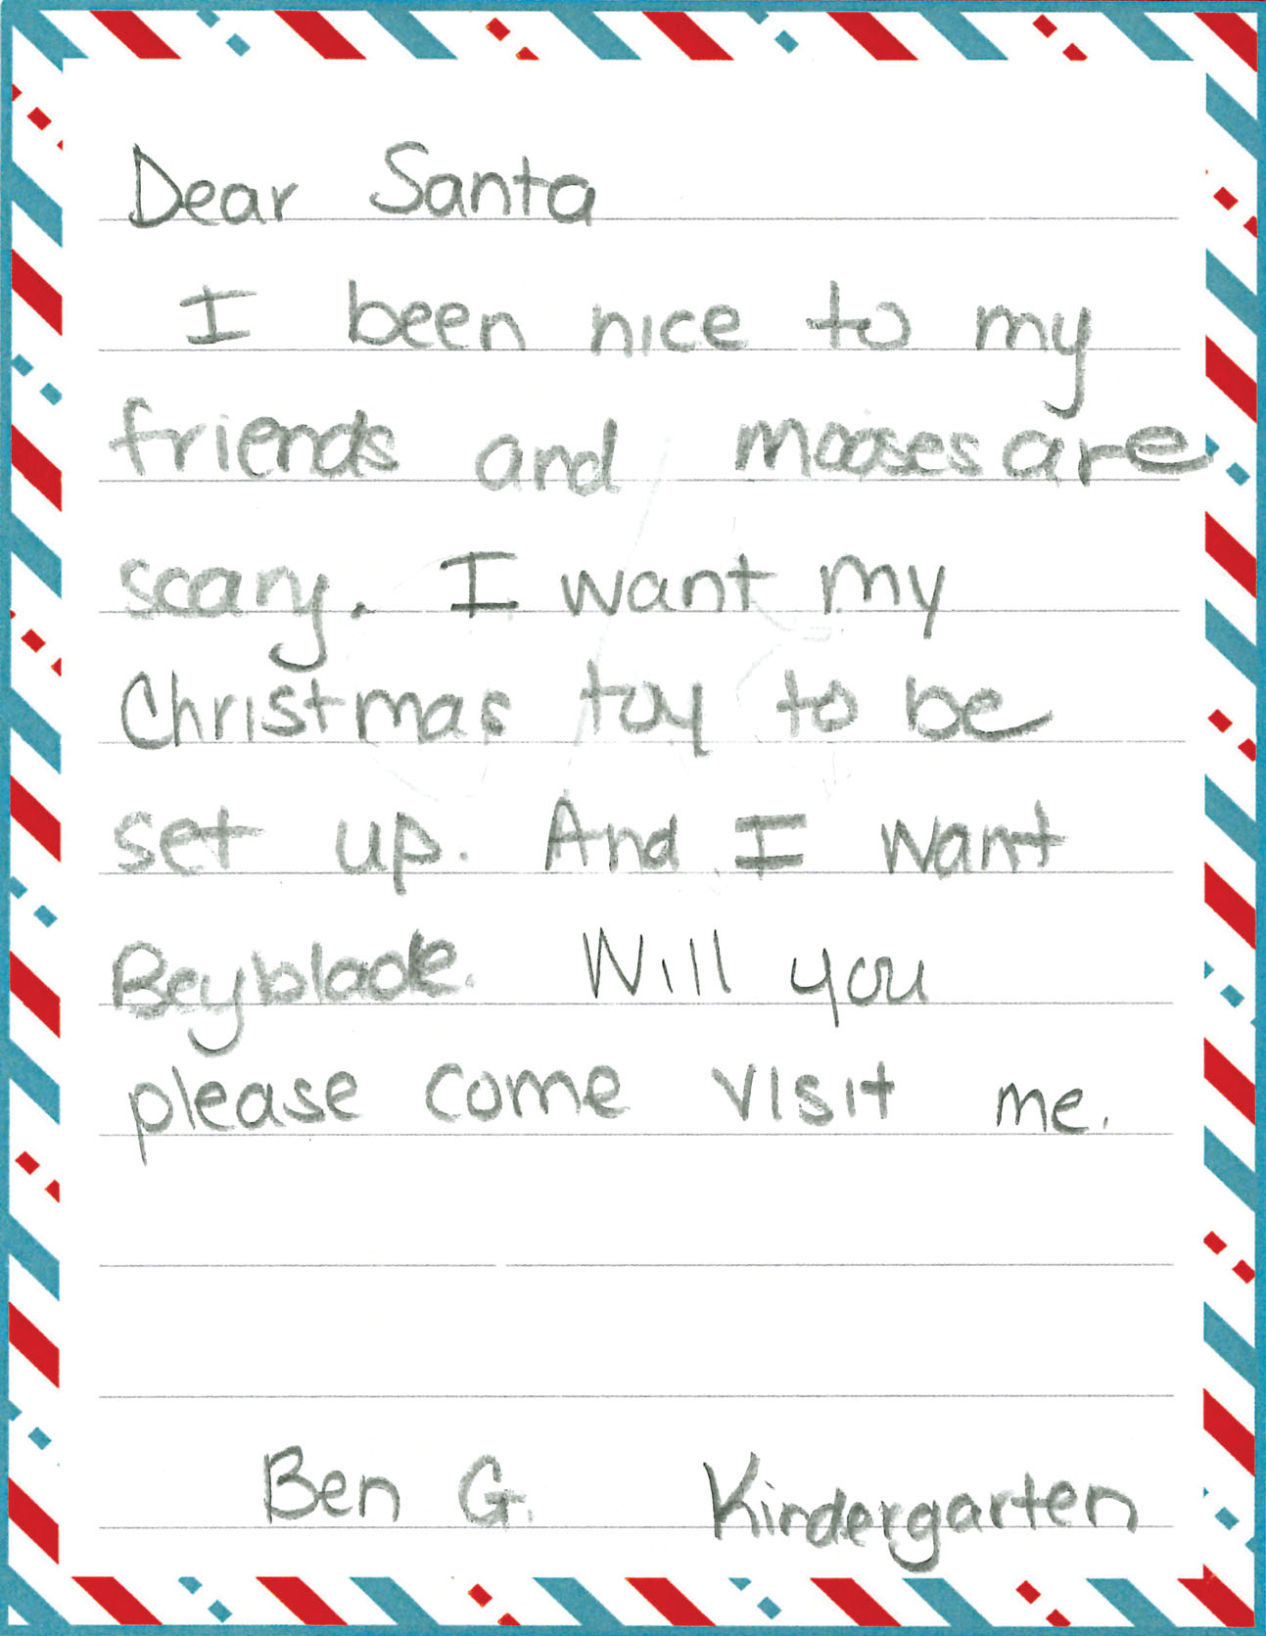 Dear Santa
I been nice to my
friends and mooses are
scary. I want my
Christmas toy to be
set up. And I want
Beyblade. Will you
please come visit me.
Ben G. Kindergarten